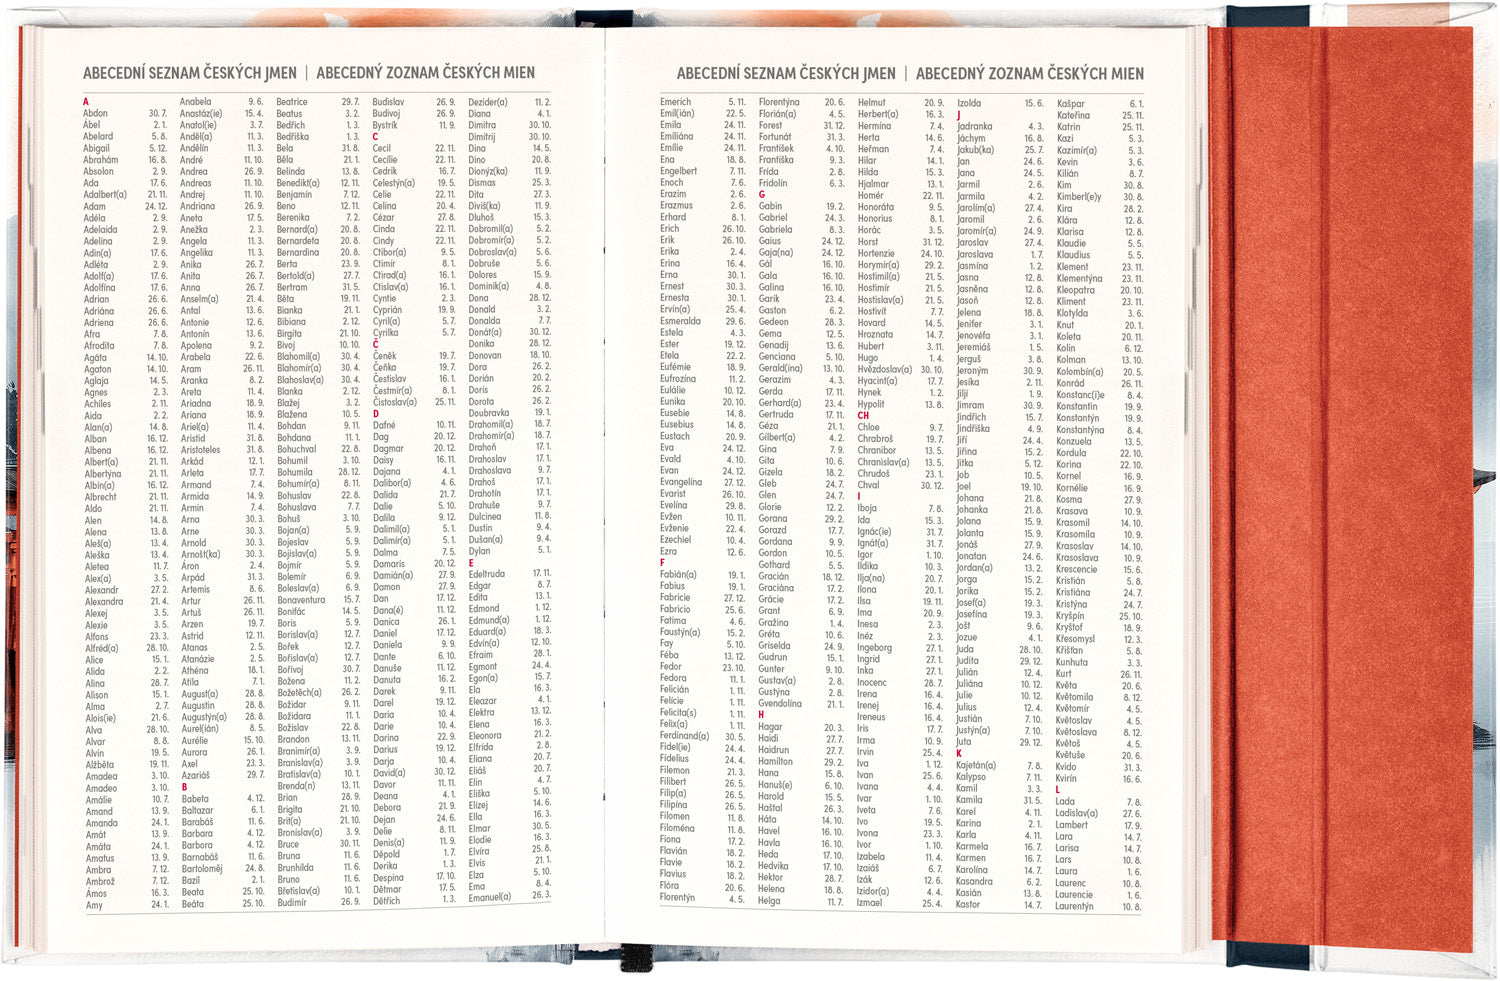 ABECEDNÍ SEZNAM ČESKÝCH JMEN | ABECEDNÝ ZOZNAM ČESKÝCH MIEN
A
Abdon 30. 7.
Ábel 2. 1.
Abelard 5. 8.
Abigail 5. 12.
Abrahám 16. 8.
Absolon 2. 9.
Ada 17. 6.
Adalbert(a) 21. 11.
Adam 24. 12.
Adéla 2. 9.
Adelaida 2. 9.
Adelina 2. 9.
Adin(a) 17. 6.
Adléta 2. 9.
Adolf(a) 17. 6.
Adolfína 17. 6.
Adrian 26. 6.
Adriána 26. 6.
Adriena 26. 6.
Afra 7. 8.
Afrodita 7. 8.
Agáta 14. 10.
Agaton 14. 10.
Aglaja 14. 5.
Agnes 2. 3.
Achiles 2. 11.
Aida 2. 2.
Alan(a) 14. 8.
Alban 16. 12.
Albena 16. 12.
Albert(a) 21. 11.
Albertýna 21. 11.
Albín(a) 16. 12.
Albrecht 21. 11.
Aldo 21. 11.
Alen 14. 8.
Alena 13. 8.
Aleš(a) 13. 4.
Aleška 13. 4.
Aletea 11. 7.
Alex(a) 3. 5.
Alexandr 27. 2.
Alexandra 21. 4.
Alexej 3. 5.
Alexie 3. 5.
Alfons 23. 3.
Alfréd(a) 28. 10.
Alice 15. 1.
Alida 2. 2.
Alina 28. 7.
Alison 15. 1.
Alma 2. 7.
Alois(ie) 21. 6.
Alva 28. 10.
Alvar 8. 8.
Alvin 19. 5.
Alžběta 19. 11.
Amadea 3. 10.
Amadeo 3. 10.
Amálie 10. 7.
Amand 13. 9.
Amanda 24. 1.
Amát 13. 9.
Amáta 24. 1.
Amatus 13. 9.
Ambra 7. 12.
Ambrož 7. 12.
Ámos 16. 3.
Amy 24. 1.
Anabela 9. 6.
Anastáz(ie) 15. 4.
Anatol(ie) 3. 7.
Anděl(a) 11. 3.
Andělín 11. 3.
André 11. 10.
Andrea 26. 9.
Andreas 11. 10.
Andrej 11. 10.
Andriana 26. 9.
Aneta 17. 5.
Anežka 2. 3.
Angela 11. 3.
Angelika 11. 3.
Anika 26. 7.
Anita 26. 7.
Anna 26. 7.
Anselm(a) 21. 4.
Antal 13. 6.
Antonie 12. 6.
Antonín 13. 6.
Apolena 9. 2.
Arabela 22. 6.
Aram 26. 11.
Aranka 8. 2.
Areta 11. 4.
Ariadna 18. 9.
Ariana 18. 9.
Ariel(a) 11. 4.
Aristid 31. 8.
Aristoteles 31. 8.
Arkád 12. 1.
Arleta 17. 7.
Armand 7. 4.
Armida 14. 9.
Armin 7. 4.
Arna 30. 3.
Arne 30. 3.
Arnold 30. 3.
Arnošt(ka) 30. 3.
Áron 2. 4.
Arpád 31. 3.
Artemis 8. 6.
Artur 26. 11.
Artuš 26. 11.
Arzen 19. 7.
Astrid 12. 11.
Atanas 2. 5.
Atanázie 2. 5.
Athéna 18. 1.
Atila 7. 1.
August(a) 28. 8.
Augustin 28. 8.
Augustýn(a) 28. 8.
Aurel(ián) 8. 5.
Aurélie 15. 10.
Aurora 26. 1.
Axel 23. 3.
Azariáš 29. 7.
B
Babeta 4. 12.
Baltazar 6. 1.
Barabáš 11. 6.
Barbara 4. 12.
Barbora 4. 12.
Barnabáš 11. 6.
Bartoloměj 24. 8.
Bazil 2. 1.
Beata 25. 10.
Beáta 25. 10.
Beatrice 29. 7.
Beatus 3. 2.
Bedřich 1. 3.
Bedřiška 1. 3.
Bela 31. 8.
Běla 21. 1.
Belinda 13. 8.
Benedikt(a) 12. 11.
Benjamín 7. 12.
Beno 12. 11.
Berenika 7. 2.
Bernard(a) 20. 8.
Bernardeta 20. 8.
Bernardina 20. 8.
Berta 23. 9.
Bertold(a) 27. 7.
Bertram 31. 5.
Běta 19. 11.
Bianka 21. 1.
Bibiana 2. 12.
Birgita 21. 10.
Bivoj 10. 10.
Blahomil(a) 30. 4.
Blahomír(a) 30. 4.
Blahoslav(a) 30. 4.
Blanka 2. 12.
Blažej 3. 2.
Blažena 10. 5.
Bohdan 9. 11.
Bohdana 11. 1.
Bohuchval 22. 8.
Bohumil 3. 10.
Bohumila 28. 12.
Bohumír(a) 8. 11.
Bohuslav 22. 8.
Bohuslava 7. 7.
Bohuš 3. 10.
Bojan(a) 5. 9.
Bojeslav 5. 9.
Bojislav(a) 5. 9.
Bojmír 5. 9.
Bolemír 6. 9.
Boleslav(a) 6. 9.
Bonaventura 15. 7.
Bonifác 14. 5.
Boris 5. 9.
Borislav(a) 12. 7.
Bořek 12. 7.
Bořislav(a) 12. 7.
Bořivoj 30. 7.
Božena 11. 2.
Božetěch(a) 26. 2.
Božidar 9. 11.
Božidara 11. 1.
Božislav 22. 8.
Brandon 13. 11.
Branimír(a) 3. 9.
Branislav(a) 3. 9.
Bratislav(a) 10. 1.
Brenda(n) 13. 11.
Brian 28. 9.
Brigita 21. 10.
Brit(a) 21. 10.
Bronislav(a) 3. 9.
Bruce 30. 11.
Bruna 11. 6.
Brunhilda 11. 6.
Bruno 11. 6.
Břetislav(a) 10. 1.
Budimír 26. 9.
Budislav 26. 9.
Budivoj 26. 9.
Bystrík 11. 9.
C
Cecil 22. 11.
Cecílie 22. 11.
Cedrik 16. 7.
Celestýn(a) 19. 5.
Celie 22. 11.
Celina 20. 4.
Cézar 27. 8.
Cinda 22. 11.
Cindy 22. 11.
Ctibor(a) 9. 5.
Ctimír 8. 1.
Ctirad(a) 16. 1.
Ctislav(a) 16. 1.
Cyntie 2. 3.
Cyprián 19. 9.
Cyril(a) 5. 7.
Cyrilka 5. 7.
Č
Čeněk 19. 7.
Čeňka 19. 7.
Čestislav 16. 1.
Čestmír(a) 8. 1.
Čistoslav(a) 25. 11.
D
Dafné 10. 11.
Dag 20. 12.
Dagmar 20. 12.
Daisy 16. 11.
Dajana 4. 1.
Dalibor(a) 4. 6.
Dalida 21. 7.
Dalie 5. 10.
Dalila 9. 12.
Dalimil(a) 5. 1.
Dalimír(a) 5. 1.
Dalma 7. 5.
Damaris 20. 12.
Damián(a) 27. 9.
Damon 27. 9.
Dan 17. 12.
Dana(é) 11. 12.
Danica 26. 1.
Daniel 17. 12.
Daniela 9. 9.
Dante 6. 10.
Danuše 11. 12.
Danuta 16. 2.
Darek 9. 11.
Darel 19. 12.
Daria 10. 4.
Darie 10. 4.
Darina 22. 9.
Darius 19. 12.
Darja 10. 4.
David(a) 30. 12.
Davor 11. 11.
Deana 4. 1.
Debora 21. 9.
Dejan 24. 6.
Delie 8. 11.
Denis(a) 11. 9.
Děpold 1. 7.
Derika 1. 3.
Despina 17. 10.
Dětmar 17. 5.
Dětřich 1. 3.
Dezider(a) 11. 2.
Diana 4. 1.
Dimitra 30. 10.
Dimitrij 30. 10.
Dina 14. 5.
Dino 20. 8.
Dionýz(ka) 11. 9.
Dismas 25. 3.
Dita 27. 3.
Diviš(ka) 11. 9.
Dluhoš 15. 3.
Dobromil(a) 5. 2.
Dobromír(a) 5. 2.
Dobroslav(a) 5. 6.
Dobruše 5. 6.
Dolores 15. 9.
Dominik(a) 4. 8.
Dona 28. 12.
Donald 3. 2.
Donalda 7. 7.
Donát(a) 30. 12.
Donika 28. 12.
Donovan 18. 10.
Dora 26. 2.
Dorián 20. 2.
Doris 26. 2.
Dorota 26. 2.
Doubravka 19. 1.
Drahomil(a) 18. 7.
Drahomír(a) 18. 7.
Drahoň 17. 1.
Drahoslav 17. 1.
Drahoslava 9. 7.
Drahoš 17. 1.
Drahotín 17. 1.
Drahuše 9. 7.
Dulcinea 11. 8.
Dustin 9. 4.
Dušan(a) 9. 4.
Dylan 5. 1.
E
Edeltruda 17. 11.
Edgar 8. 7.
Edita 13. 1.
Edmond 1. 12.
Edmund(a) 1. 12.
Eduard(a) 18. 3.
Edvín(a) 12. 10.
Efraim 28. 1.
Egmont 24. 4.
Egon(a) 15. 7.
Ela 16. 3.
Eleazar 4. 1.
Elektra 13. 12.
Elena 16. 3.
Eleonora 21. 2.
Elfrida 2. 8.
Eliana 20. 7.
Eliáš 20. 7.
Elin 4. 7.
Eliška 5. 10.
Elizej 14. 6.
Ella 16. 3.
Elmar 30. 5.
Elodie 16. 3.
Elvíra 25. 8.
Elvis 21. 1.
Elza 5. 10.
Ema 8. 4.
Emanuel(a) 26. 3.
ABECEDNÍ SEZNAM ČESKÝCH JMEN | ABECEDNÝ ZOZNAM ČESKÝCH MIEN
Emerich 5. 11.
Emil(ián) 22. 5.
Emila 24. 11.
Emiliána 24. 11.
Emílie 24. 11.
Ena 18. 8.
Engelbert 7. 11.
Enoch 7. 6.
Erazim 2. 6.
Erazmus 2. 6.
Erhard 8. 1.
Erich 26. 10.
Erik 26. 10.
Erika 2. 4.
Erina 16. 4.
Erna 30. 1.
Ernest 30. 3.
Ernesta 30. 1.
Ervín(a) 25. 4.
Esmeralda 29. 6.
Estela 4. 3.
Ester 19. 12.
Etela 22. 2.
Eufémie 18. 9.
Eufrozína 11. 2.
Eulálie 10. 12.
Eunika 20. 10.
Eusebie 14. 8.
Eusebius 14. 8.
Eustach 20. 9.
Eva 24. 12.
Evald 4. 10.
Evan 24. 12.
Evangelína 27. 12.
Evarist 26. 10.
Evelína 29. 8.
Evžen 10. 11.
Evženie 22. 4.
Ezechiel 10. 4.
Ezra 12. 6.
F
Fabián(a) 19. 1.
Fabius 19. 1.
Fabricie 27. 12.
Fabricio 25. 6.
Fatima 4. 6.
Faustýn(a) 15. 2.
Fay 5. 10.
Féba 13. 12.
Fedor 23. 10.
Fedora 11. 1.
Felicián 1. 11.
Felície 1. 11.
Felicita(s) 1. 11.
Felix(a) 1. 11.
Ferdinand(a) 30. 5.
Fidel(ie) 24. 4.
Fidelius 24. 4.
Filemon 21. 3.
Filibert 26. 5.
Filip(a) 26. 5.
Filipína 26. 5.
Filomen 11. 8.
Filoména 11. 8.
Fiona 17. 2.
Flavián 18. 2.
Flavie 18. 2.
Flavius 18. 2.
Flóra 20. 6.
Florentýn 4. 5.
Florentýna 20. 6.
Florián(a) 4. 5.
Forest 31. 12.
Fortunát 31. 3.
František 4. 10.
Františka 9. 3.
Frída 2. 8.
Fridolín 6. 3.
G
Gabin 19. 2.
Gabriel 24. 3.
Gabriela 8. 3.
Gaius 24. 12.
Gaja(na) 24. 12.
Gál 16. 10.
Gala 16. 10.
Galina 16. 10.
Garik 23. 4.
Gaston 6. 2.
Gedeon 28. 3.
Gema 12. 5.
Genadij 13. 6.
Genciana 5. 10.
Gerald(ina) 13. 10.
Gerazim 4. 3.
Gerda 17. 11.
Gerhard(a) 23. 4.
Gertruda 17. 11.
Géza 21. 1.
Gilbert(a) 4. 2.
Gina 7. 9.
Gita 10. 6.
Gizela 18. 2.
Gleb 24. 7.
Glen 24. 7.
Glorie 12. 2.
Gorana 29. 2.
Gorazd 17. 7.
Gordana 9. 9.
Gordon 10. 5.
Gothard 5. 5.
Gracián 18. 12.
Graciána 17. 2.
Grácie 17. 2.
Grant 6. 9.
Gražina 1. 4.
Gréta 10. 6.
Griselda 24. 9.
Gudrun 15. 1.
Gunter 9. 10.
Gustav(a) 2. 8.
Gustýna 2. 8.
Gvendolína 21. 1.
H
Hagar 20. 3.
Haidi 27. 7.
Haidrun 27. 7.
Hamilton 29. 2.
Hana 15. 8.
Hanuš(e) 6. 10.
Harold 15. 5.
Haštal 26. 3.
Háta 14. 10.
Havel 16. 10.
Havla 16. 10.
Heda 17. 10.
Hedvika 17. 10.
Hektor 28. 7.
Helena 18. 8.
Helga 11. 7.
Helmut 20. 9.
Herbert(a) 16. 3.
Hermína 7. 4.
Herta 14. 6.
Heřman 7. 4.
Hilar 14. 1.
Hilda 15. 3.
Hjalmar 13. 1.
Homér 22. 11.
Honoráta 9. 5.
Honorius 8. 1.
Horác 3. 5.
Horst 31. 12.
Hortenzie 24. 10.
Horymír(a) 29. 2.
Hostimil(a) 21. 5.
Hostimír 21. 5.
Hostislav(a) 21. 5.
Hostivít 7. 7.
Hovard 14. 5.
Hroznata 14. 7.
Hubert 3. 11.
Hugo 1. 4.
Hvězdoslav(a) 30. 10.
Hyacint(a) 17. 7.
Hynek 1. 2.
Hypolit 13. 8.
CH
Chloe 9. 7.
Chrabroš 19. 7.
Chranibor 13. 5.
Chranislav(a) 13. 5.
Chrudoš 23. 1.
Chval 30. 12.
I
Iboja 7. 8.
Ida 15. 3.
Ignác(ie) 31. 7.
Ignát(a) 31. 7.
Igor 1. 10.
Ildika 10. 3.
Ilja(na) 20. 7.
Ilona 20. 1.
Ilsa 19. 11.
Ima 20. 9.
Inesa 2. 3.
Inéz 2. 3.
Ingeborg 27. 1.
Ingrid 27. 1.
Inka 27. 1.
Inocenc 28. 7.
Irena 16. 4.
Irenej 16. 4.
Ireneus 16. 4.
Iris 17. 7.
Irma 10. 9.
Irvin 25. 4.
Iva 1. 12.
Ivan 25. 6.
Ivana 4. 4.
Ivar 1. 10.
Iveta 7. 6.
Ivo 19. 5.
Ivona 23. 3.
Ivor 1. 10.
Izabela 11. 4.
Izaiáš 6. 7.
Izák 12. 6.
Izidor(a) 4. 4.
Izmael 25. 4.
Izolda 15. 6.
J
Jadranka 4. 3.
Jáchym 16. 8.
Jakub(ka) 25. 7.
Jan 24. 6.
Jana 24. 5.
Jarmil 2. 6.
Jarmila 4. 2.
Jarolím(a) 27. 4.
Jaromil 2. 6.
Jaromír(a) 24. 9.
Jaroslav 27. 4.
Jaroslava 1. 7.
Jasmína 1. 2.
Jasna 12. 8.
Jasněna 12. 8.
Jasoň 12. 8.
Jelena 18. 8.
Jenifer 3. 1.
Jenovéfa 3. 1.
Jeremiáš 1. 5.
Jerguš 3. 8.
Jeroným 30. 9.
Jesika 2. 11.
Jiljí 1. 9.
Jimram 30. 9.
Jindřich 15. 7.
Jindřiška 4. 9.
Jiří 24. 4.
Jiřina 15. 2.
Jitka 5. 12.
Job 10. 5.
Joel 19. 10.
Johana 21. 8.
Johanka 21. 8.
Jolana 15. 9.
Jolanta 15. 9.
Jonáš 27. 9.
Jonatan 24. 6.
Jordan(a) 13. 2.
Jorga 15. 2.
Jorika 15. 2.
Josef(a) 19. 3.
Josefína 19. 3.
Jošt 9. 6.
Jozue 4. 1.
Juda 28. 10.
Judita 29. 12.
Julián 12. 4.
Juliána 10. 12.
Julie 10. 12.
Julius 12. 4.
Justián 7. 10.
Justýn(a) 7. 10.
Juta 29. 12.
K
Kajetán(a) 7. 8.
Kalypso 7. 11.
Kamil 3. 3.
Kamila 31. 5.
Karel 4. 11.
Karina 2. 1.
Karla 4. 11.
Karmela 16. 7.
Karmen 16. 7.
Karolína 14. 7.
Kasandra 6. 2.
Kasián 13. 8.
Kastor 14. 7.
Kašpar 6. 1.
Kateřina 25. 11.
Katrin 25. 11.
Kazi 5. 3.
Kazimír(a) 5. 3.
Kevin 3. 6.
Kilián 8. 7.
Kim 30. 8.
Kimberl(e)y 30. 8.
Kira 28. 2.
Klára 12. 8.
Klarisa 12. 8.
Klaudie 5. 5.
Klaudius 5. 5.
Klement 23. 11.
Klementýna 23. 11.
Kleopatra 20. 10.
Kliment 23. 11.
Klotylda 3. 6.
Knut 20. 1.
Koleta 20. 11.
Kolin 6. 12.
Kolman 13. 10.
Kolombín(a) 20. 5.
Konrád 26. 11.
Konstanc(i)e 8. 4.
Konstantin 19. 9.
Konstantýn 19. 9.
Konstantýna 8. 4.
Konzuela 13. 5.
Kordula 22. 10.
Korina 22. 10.
Kornel 16. 9.
Kornélie 16. 9.
Kosma 27. 9.
Krasava 10. 9.
Krasomil 14. 10.
Krasomila 10. 9.
Krasoslav 14. 10.
Krasoslava 10. 9.
Krescencie 15. 6.
Kristián 5. 8.
Kristiána 24. 7.
Kristýna 24. 7.
Kryšpín 25. 10.
Kryštof 18. 9.
Křesomysl 12. 3.
Křišťan 5. 8.
Kunhuta 3. 3.
Kurt 26. 11.
Květa 20. 6.
Květomila 8. 12.
Květomír 4. 5.
Květoslav 4. 5.
Květoslava 8. 12.
Květoš 4. 5.
Květuše 20. 6.
Kvido 31. 3.
Kvirín 16. 6.
L
Lada 7. 8.
Ladislav(a) 27. 6.
Lambert 17. 9.
Lara 14. 7.
Larisa 14. 7.
Lars 10. 8.
Laura 1. 6.
Laurenc 10. 8.
Laurencie 1. 6.
Laurentýn 10. 8.